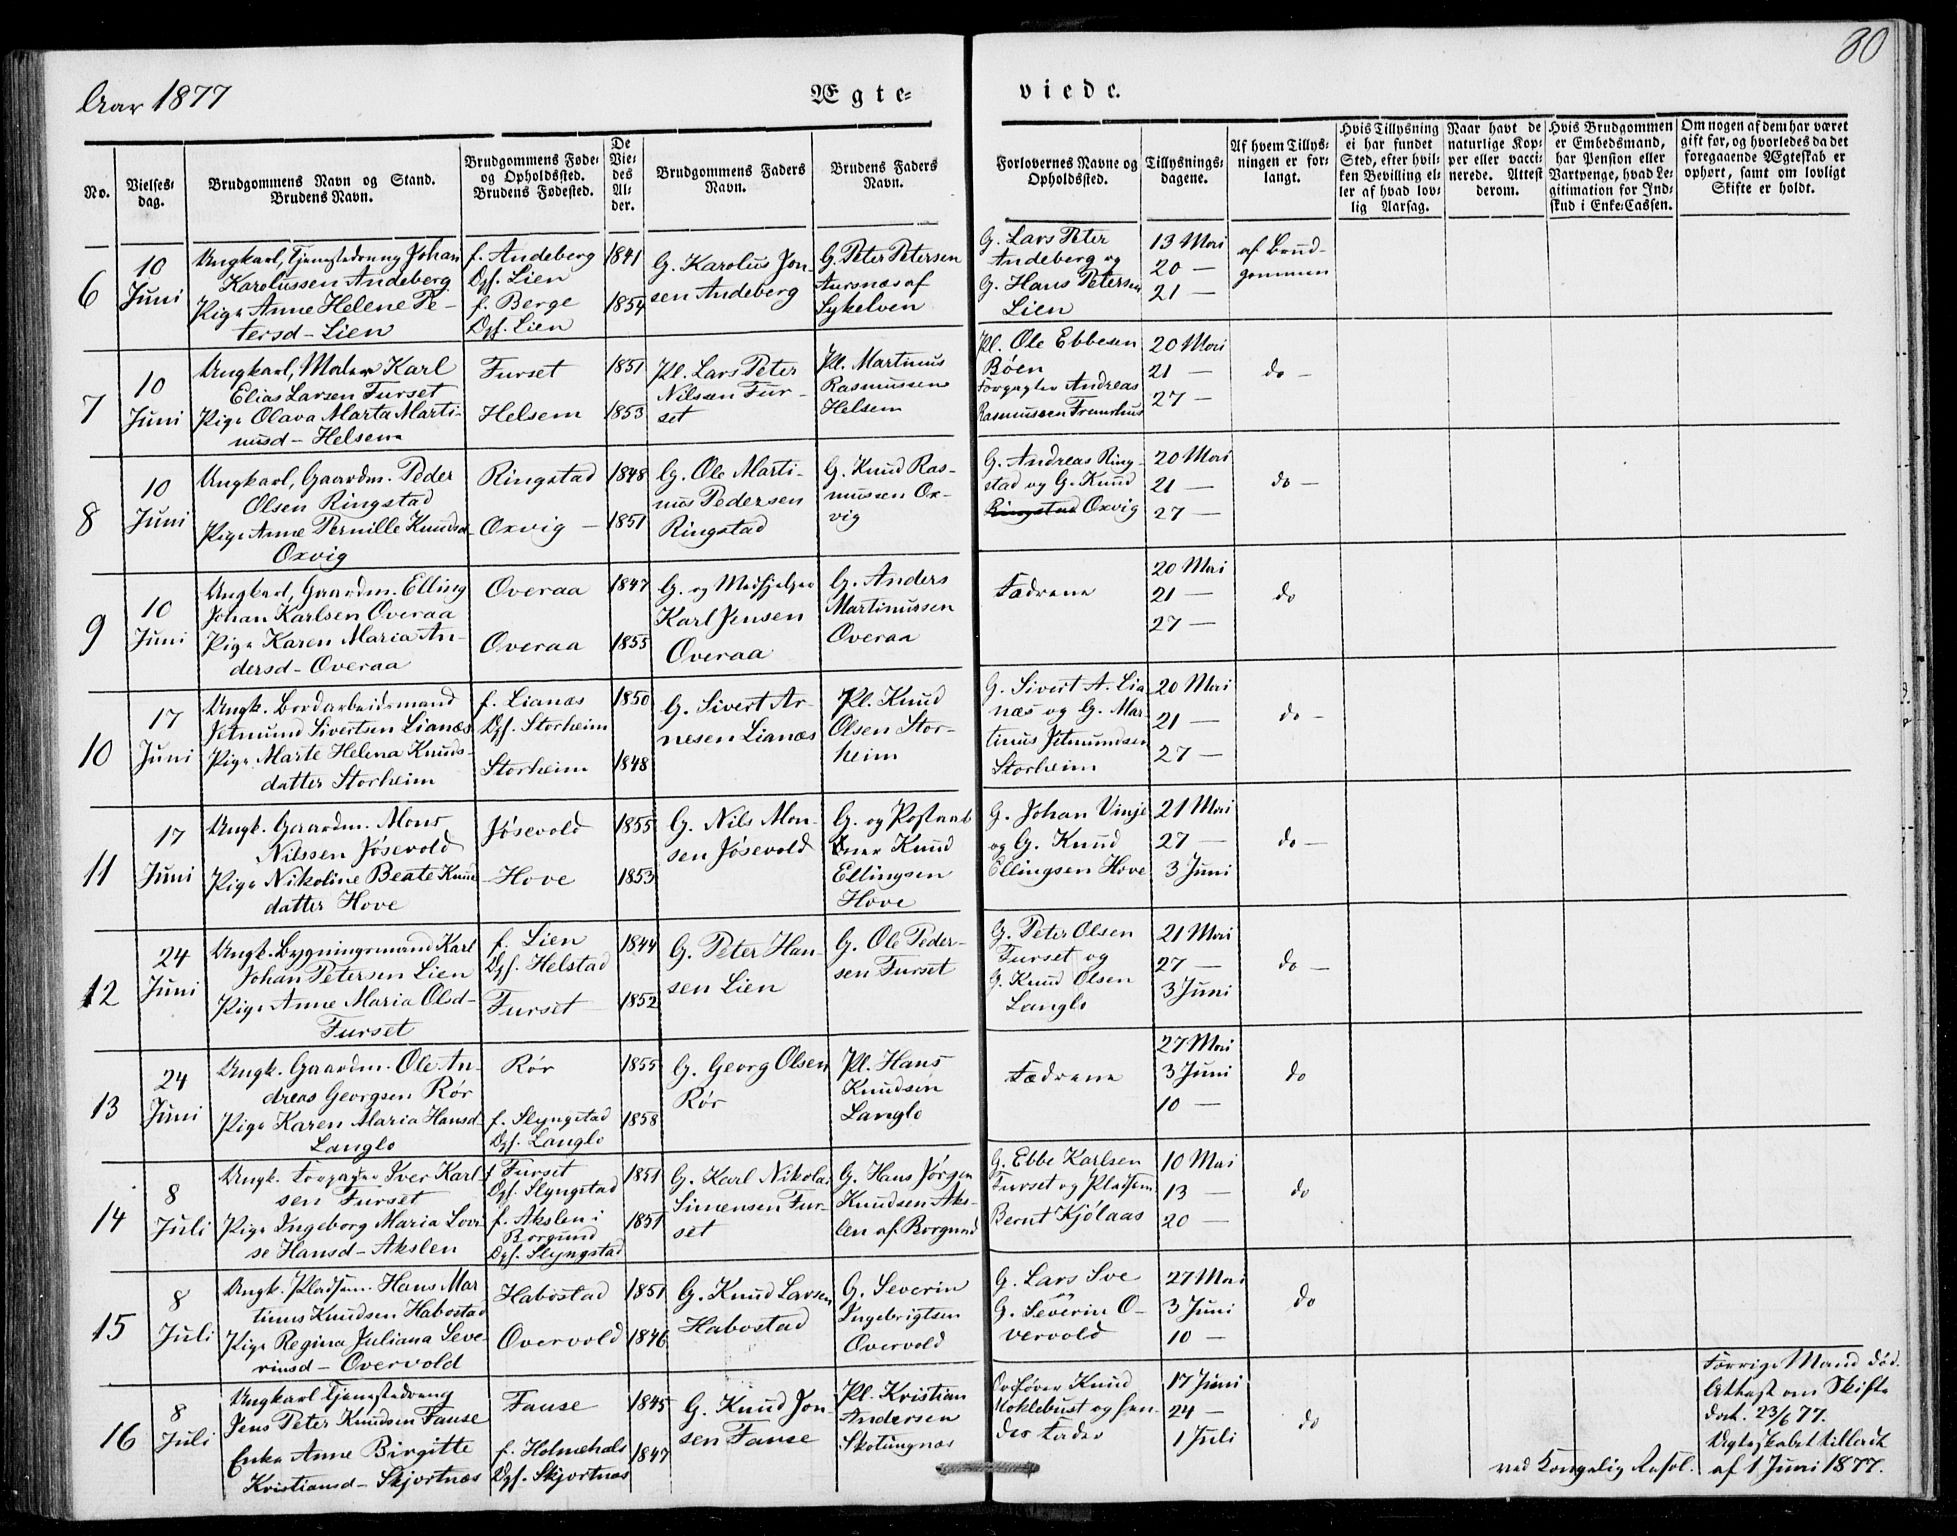 Aar 1877
Ægte=
viede.
80
No.
Vielses=
dag.
Brudgommens Navn og Stand.
Brudens Navn.
Brudgommens Føde=
og Opholdssted.
Brudens Fødested.
De
Vie=
des
Al=
der.
Brudgommens Faders
Navn.
Brudens Faders
Navn.
Forlovernes Navne og
Opholdssted.
Tillysnings=
dagene.
Af hvem Tillys=
ningen er for=
langt.
Hvis Tillysning
ei har fundet
Sted, efter hvil=
ken Bevilling el=
ler af hvad lov=
lig Aarsag.
Naar havt de
naturlige Kop=
per eller vacci=
nerede. Attest
derom.
Hvis Brudgommen
er Embedsmand,
har Pension eller
Vartpenge, hvad Le=
gitimation for Ind=
skud i Enke=Cassen.
Om nogen af dem har været
gift før, og hvorledes da det
foregaaende Ægteskab er
ophørt, samt om lovligt
Skifte er holdt.
6
10
Juni
Ungkarl, Tjenestedreng Johan
Karolussen Andeberg
Pige Anne Helene Pe-
tersd- Lien
f. Andeberg
Opf. Lien
f. Berge
Opf. Lien
1841
1854
G. Karolus Jon-
sen Andeberg
G. Peter Petersen
Aursnæs af
Sykelven
G. Lars Peter
Andeberg og
G. Hans Petersen
Lien
13 Mai
20 —
21 —
af Brud-
gommen
7
10
Juni
Ungkarl, Maler Karl
Elias Larsen Furset
Pige Olava Marta Marti-
nusd- Helsem
Furset
Helsem
1851
1853
Pl. Lars Peter
Nilsen Fur-
set
Pl. Martinus
Rasmussen
Helsem
Pl. Ole Ebbesen
Bøen
Forpagter Andreas
Rasmussen Framhus
20 Mai
21 —
27 —
do —
8
10
Juni
Ungkarl, Gaardm. Peder
Olsen Ringstad
Pige Anne Pernille Knudsd-
Oxvig
Ringstad
Oxvig —
1848
1851
G. Ole Marti-
nus Pedersen
Ringstad
G. Knud Ras-
mussen Ox-
vig
G. Andreas Ring-
stad og G. Knud
Ringstad Oxvig
20 Mai
21 —
27 —
do —
9
10
Juni
Ungkarl, Gaardm. Elling
Johan Karlsen Overaa
Pige Karen Maria An-
dersd- Overaa
Overaa
Overaa
1847
1855
G. og Medhjelper
Karl Jensen
Overaa
G. Anders
Martinussen
Overaa
Fædrene
20 Mai
21 —
27 —
do
10
17
Juni
Ungk. Jordarbeidsmand
Jetmund Sivertsen Lianæs
Pige Marte Helena Knuds-
datter Storheim
f. Lianæs
Opf. Storheim
Storheim
1850
1848
G. Sivert Ar-
nesen Lianæs
Pl. Knud
Olsen Stor-
heim
G. Sivert A. Lia-
næs og G. Mar-
tinus Jetmundsen
Storheim
20 Mai
21 —
27 —
do —
11
17
Juni
Ungk. Gaardm. Mons
Nilssen Jøsevold
Pige Nikoline Beate Knud-
datter Hove
Jøsevold
Hove
1855
1853
G. Nils Mon-
sen Jøsevold
G. og Postaab-
ner Knud
Ellingsen
Hove
G. Johan Vinje
og G. Knud
Ellingsen Hove
21 Mai
27 —
3 Juni
do —
12
24
Juni
Ungk. Bygningsmand Karl
Johan Petersen Lien
Pige Anne Maria Olsd-
Furset
f. Lien
Opf. Helstad
Furset
1844
1852
G. Peter Han-
sen Lien
G. Ole Peder-
sen Furset
G. Peter Olsen
Furset og
G. Knud Olsen
Langlo
21 Mai
27 —
3 Juni
do —
13
24
Juni
Ungk. Gaardm. Ole An-
dreas Georgsen Rør
Pige Karen Maria Hansd-
Langlo
Rør
f. Slyngstad
Opf. Langlo
1855
1858
G. Georg Olsen
Rør
Pl. Hans
Knudsen
Langlo
Fædrene
27 Mai
3 Juni
10 —
do
14
8
Juli
Ungk. Forpagter Iver Karl-
sen Furset
Pige Ingeborg Maria Lovi-
se Hansd- Akslen
f Furset
Opf. Slyngstad
f. Akslen i
Borgund
Opf. Slyngstad
1851
1851
G. Karl Nikolai
Simensen Fur-
set
G. Hans Jørgen
Knudsen Aks-
len af Borgund
G. Ebbe Karlsen
Furset og Pladsem.
Bernt Kjølaas
10 Mai
13 —
20 —
do
15
8
Juli
Ungk. Pladsem. Hans Mar
tinus Knudsen Habostad
Pige Regina Juliana Seve
rinsd- Overvold
Habostad
Overvold
1851
1846
G. Knud Larsen
Habostad
G. Severin
Ingebrigtsen
Overvold
G. Lars Sve
og
G. Severin O-
vervold
27 Mai
3 Juni
10 —
do
16
8
Juli
Ungkarl Tjenestedreng
Jens Peter Knudsen Fause
Enke Anne Birgitte
Kristiansd- Skjortnæs
Fause
f. Holmehals
Opf. Skjortnæs
1845
1847
G. Knud Jon-
sen Fause
Pl. Kristian
Andersen
Skotungnæs
Ordfører Knud
Koklebust og hen-
des Fader
17 Juni
24 —
1 Juli
do
Forrige Mand død.
Attest om Skifte
dat. 23/6 77.
Ægteskabet tilladt
ved Kongelig Resol. af 1 Juni 1877.